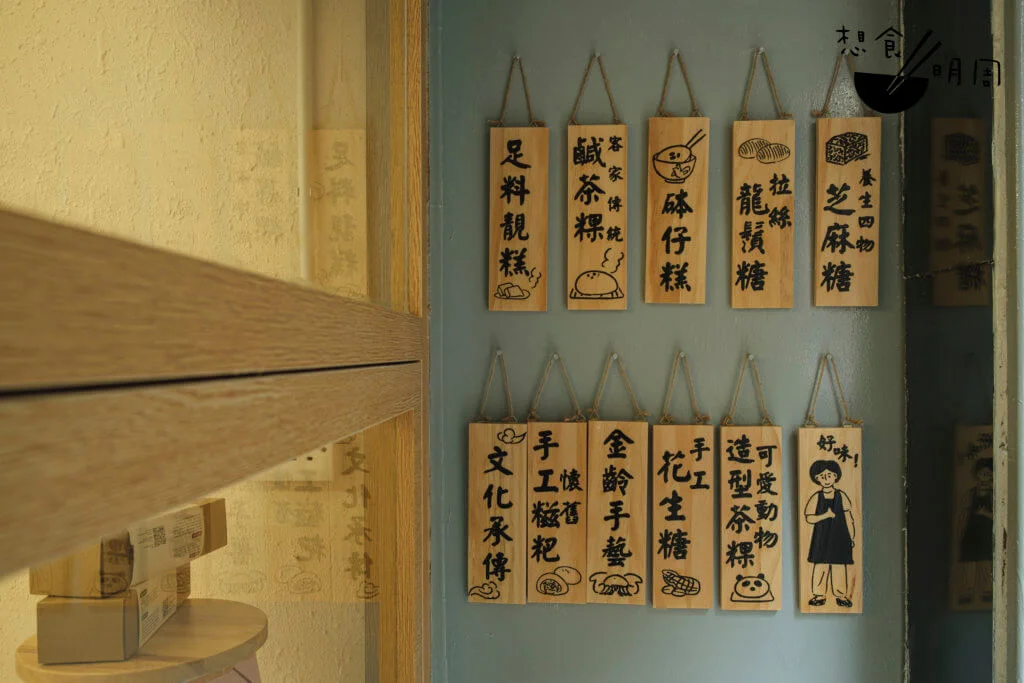 想食
明周
足料靚糕
客家傳統
鹹茶粿
砵仔糕
拉絲
龍鬚糖
養生四物
芝麻糖
文化承傳
懷舊
手工糍粑
金齡手藝
手工
花生糖
可愛動物
造型茶粿
好味!